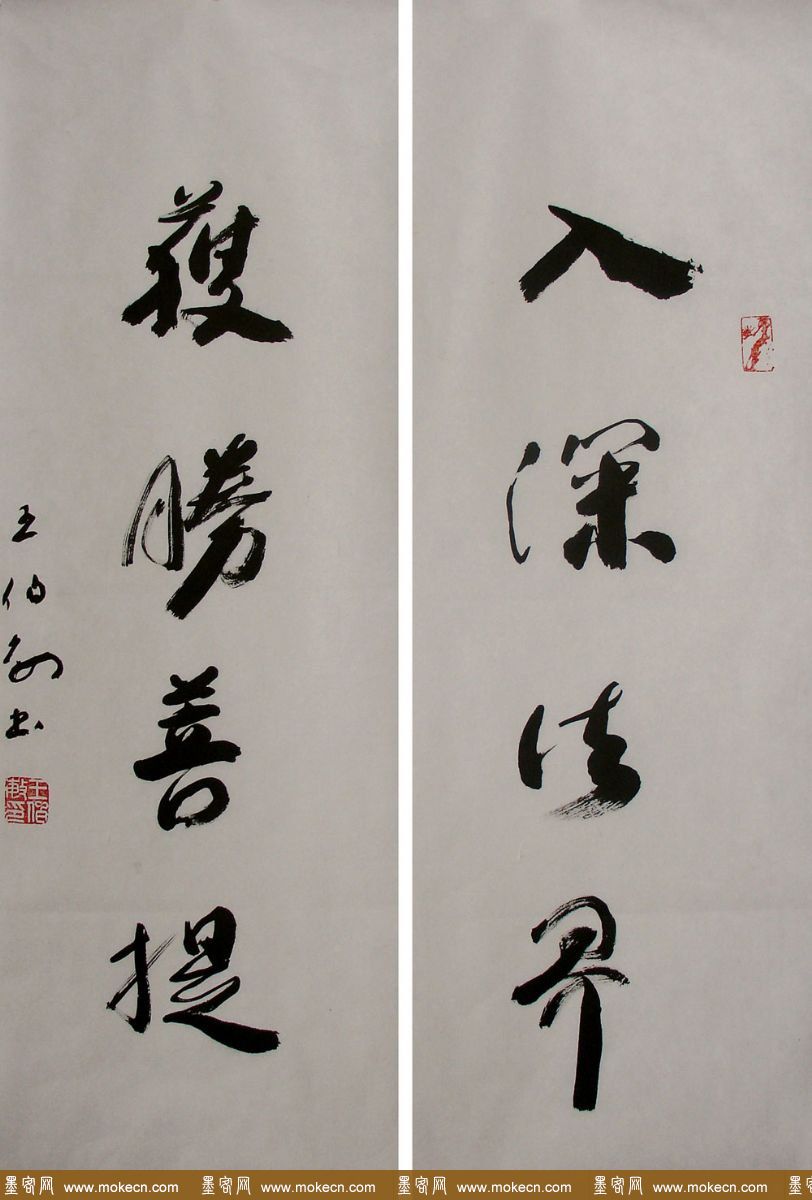 入深法界
獲勝菩提
王伯敏书
王伯敏印
墨客网 www.mokecn.com 墨客网 www.mokecn.com 墨客网 www.mokecn.com 墨客网 www.mokecn.com